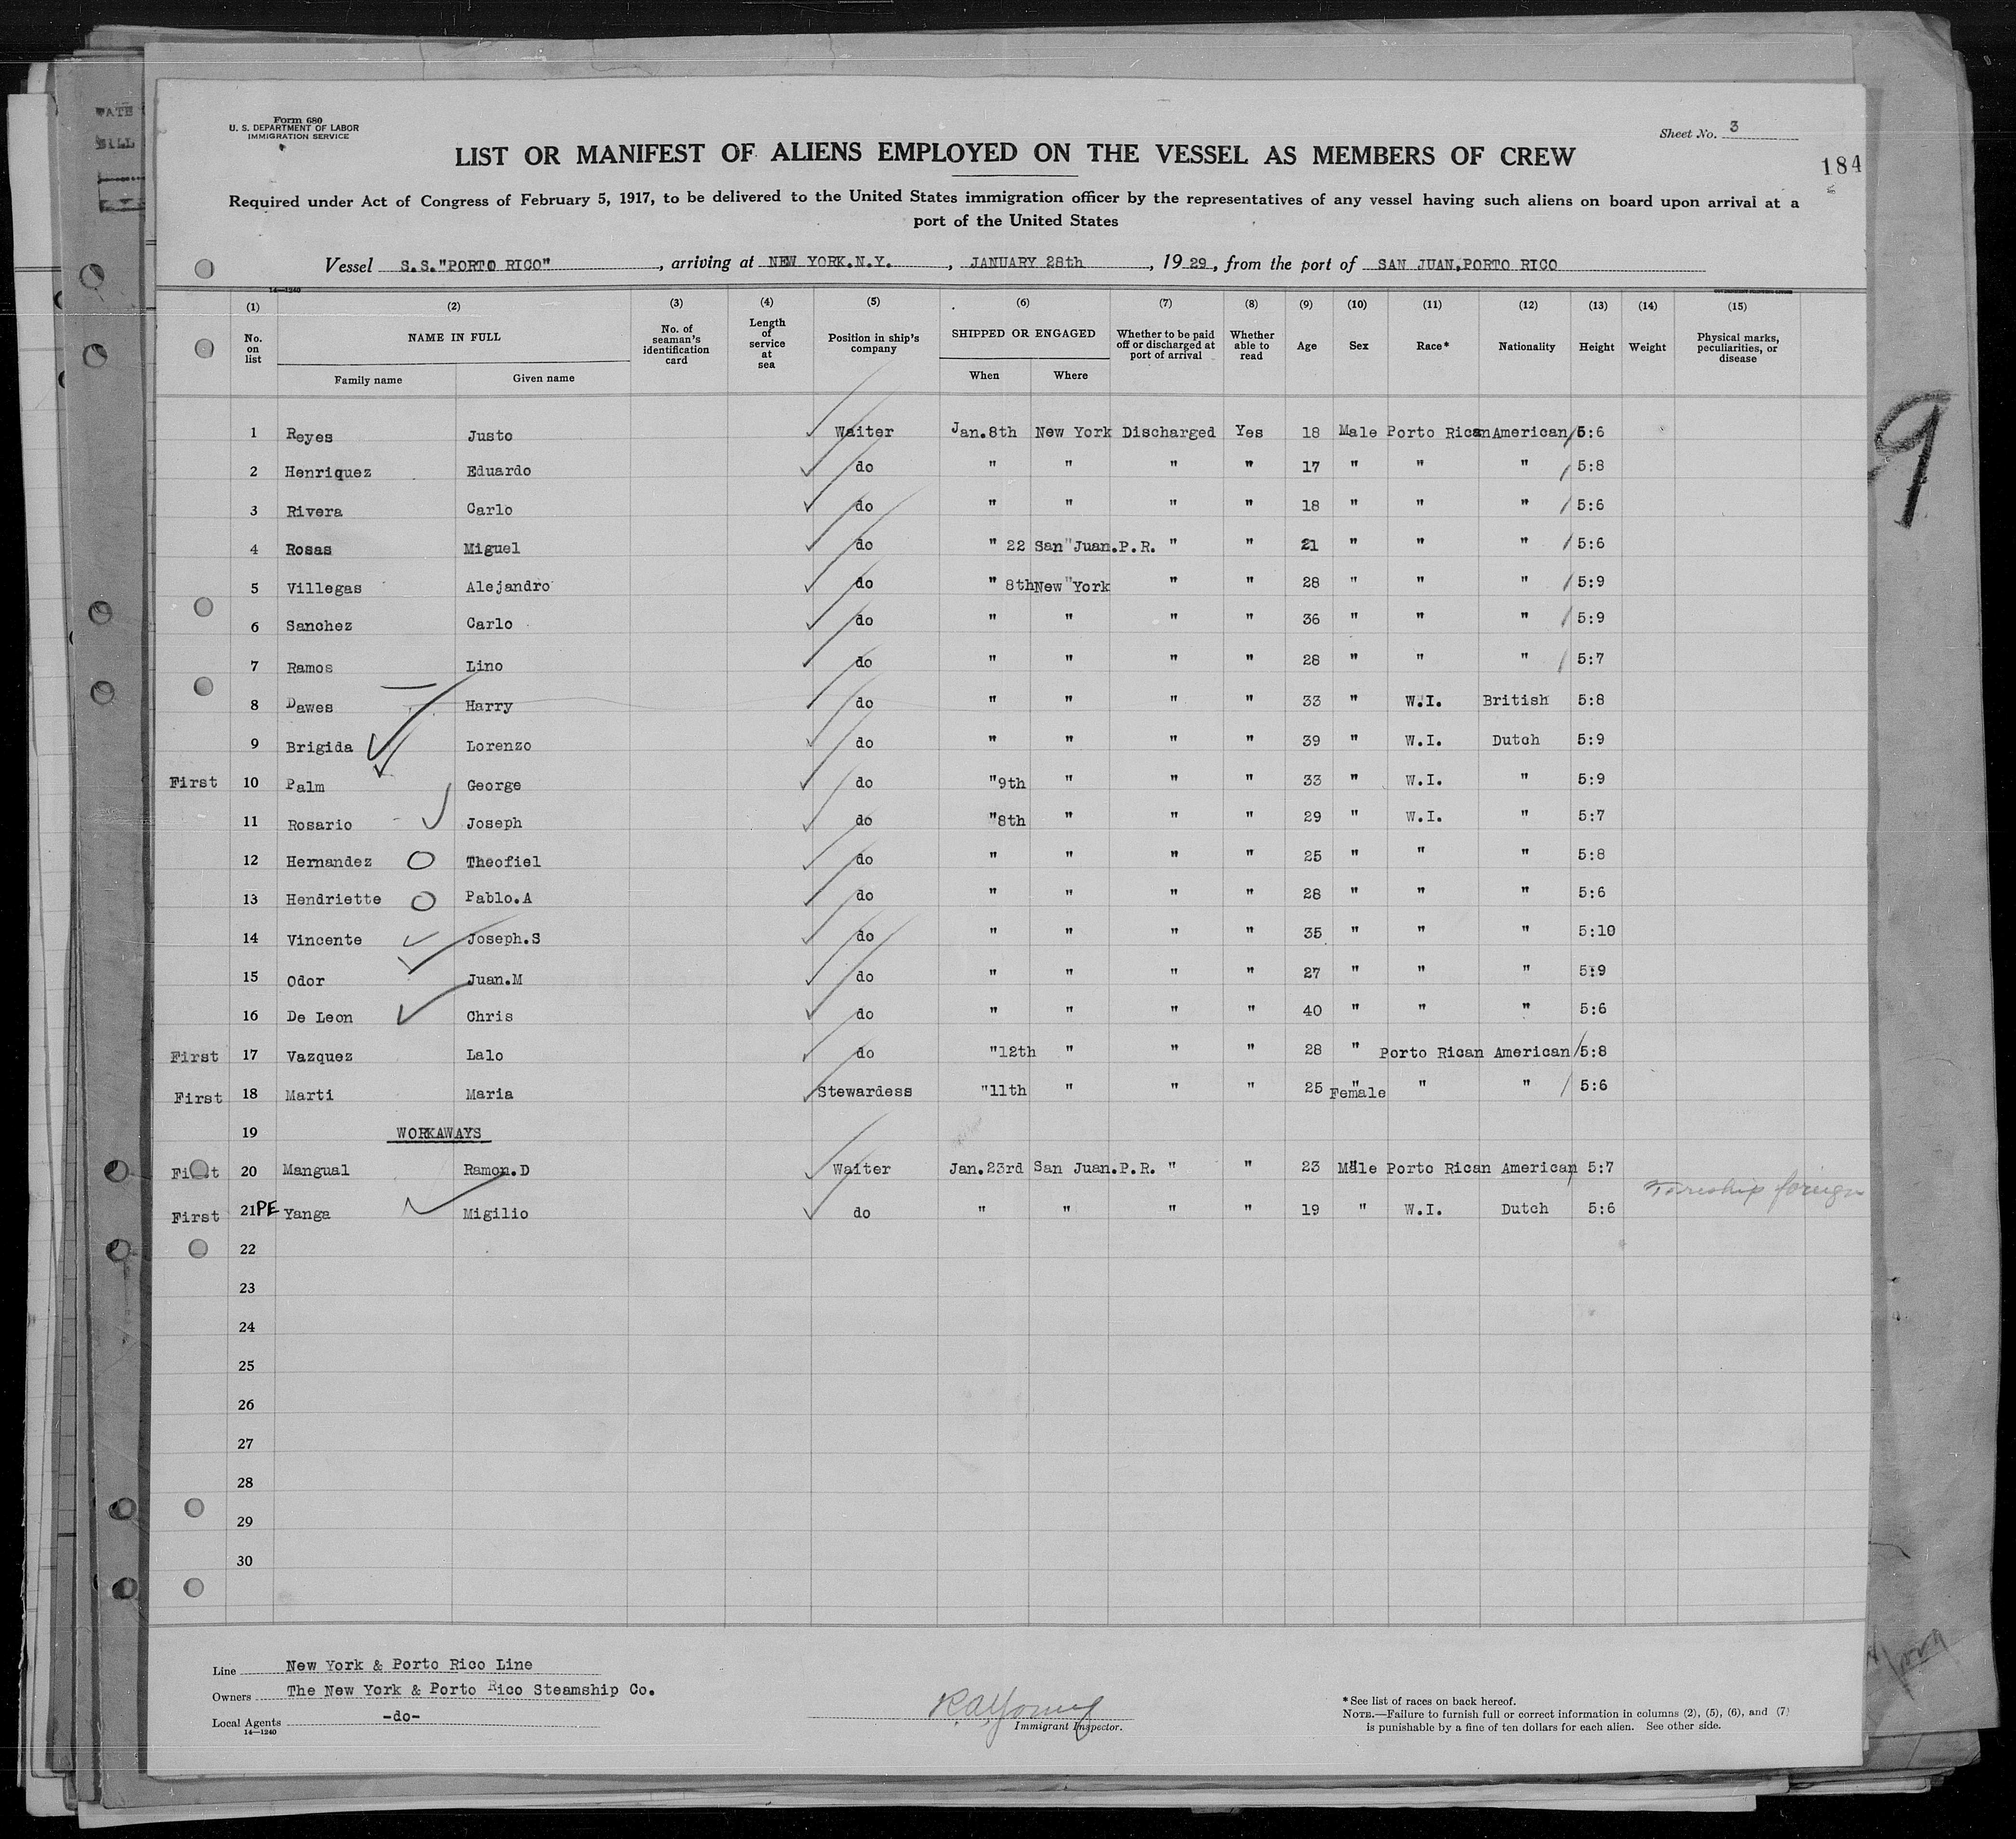 Form 680
U. S. DEPARTMENT OF LABOR
IMMIGRATION SERVICE
Sheet No. 3
LIST OR MANIFEST OF ALIENS EMPLOYED ON THE VESSEL AS MEMBERS OF CREW
184
Required under Act of Congress of February 5, 1917, to be delivered to the United States immigration officer by the representatives of any vessel having such aliens on board upon arrival at a
port of the United States
Vessel S.S."PORTO RICO", arriving at NEW YORK.N.Y., JANUARY 28th, 1929, from the port of SAN JUAN,PORTO RICO
14—1240
(1) (2) (3) (4) (5) (6) (7) (8) (9) (10) (11) (12) (13) (14) (15)
No. on list NAME IN FULL No. of seaman's identification card Length of service at sea Position in ship's company SHIPPED OR ENGAGED Whether to be paid off or discharged at port of arrival Whether able to read Age Sex Race* Nationality Height Weight Physical marks, peculiarities, or disease
Family name Given name When Where
1 Reyes Justo Waiter Jan.8th New York Discharged Yes 18 Male Porto Rican American 5:6
2 Henriquez Eduardo do " " " " 17 " " " 5:8
3 Rivera Carlo do " " " " 18 " " " 5:6
4 Rosas Miguel do " 22 San"Juan.P.R. " " 21 " " " 5:6
5 Villegas Alejandro do " 8th New"York " " 28 " " " 5:9
6 Sanchez Carlo do " " " " 36 " " " 5:9
7 Ramos Lino do " " " " 28 " " " 5:7
8 Dawes Harry do " " " " 33 " W.I. British 5:8
9 Brigida Lorenzo do " " " " 39 " W.I. Dutch 5:9
First 10 Palm George do "9th " " " 33 " W.I. " 5:9
11 Rosario Joseph do "8th " " " 29 " W.I. " 5:7
12 Hernandez Theofiel do " " " " 25 " " " 5:8
13 Hendriette Pablo.A do " " " " 28 " " " 5:6
14 Vincente Joseph.S do " " " " 35 " " " 5:10
15 Odor Juan.M do " " " " 27 " " " 5:9
16 De Leon Chris do " " " " 40 " " " 5:6
First 17 Vazquez Lalo do "12th " " " 28 " Porto Rican American 5:8
First 18 Marti Maria Stewardess "11th " " " 25 " Female " " 5:6
19 WORKAWAYS
First 20 Mangual Ramon.D Waiter Jan.23rd San Juan.P.R. " " 23 Male Porto Rican American 5:7
First 21 PE Yanga Migilio do " " " " 19 " W.I. Dutch 5:6 foreign
22
23
24
25
26
27
28
29
30
9
Line New York & Porto Rico Line
Owners The New York & Porto Rico Steamship Co.
Local Agents -do-
14—1240
Immigrant Inspector.
*See list of races on back hereof.
NOTE.—Failure to furnish full or correct information in columns (2), (5), (6), and (7)
is punishable by a fine of ten dollars for each alien. See other side.